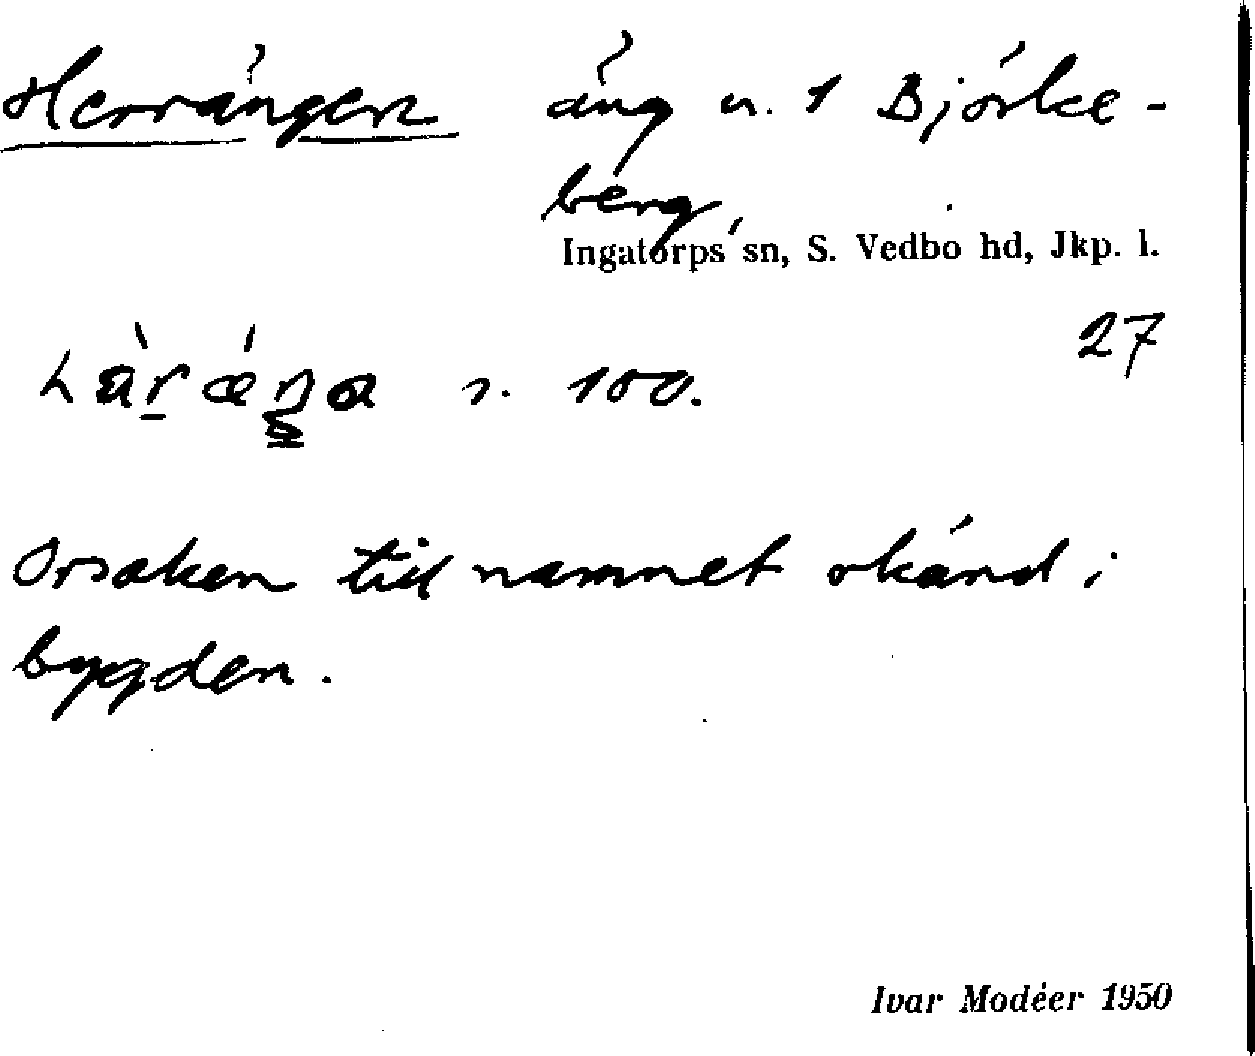 Herrängen äng n. 1 Björke-
berg,
Ingatorps sn, S. Vedbo hd, Jkp. l.
27
s. 100.
Orsaken till namnet okänd i
bygden.
Ivar Modéer 1950